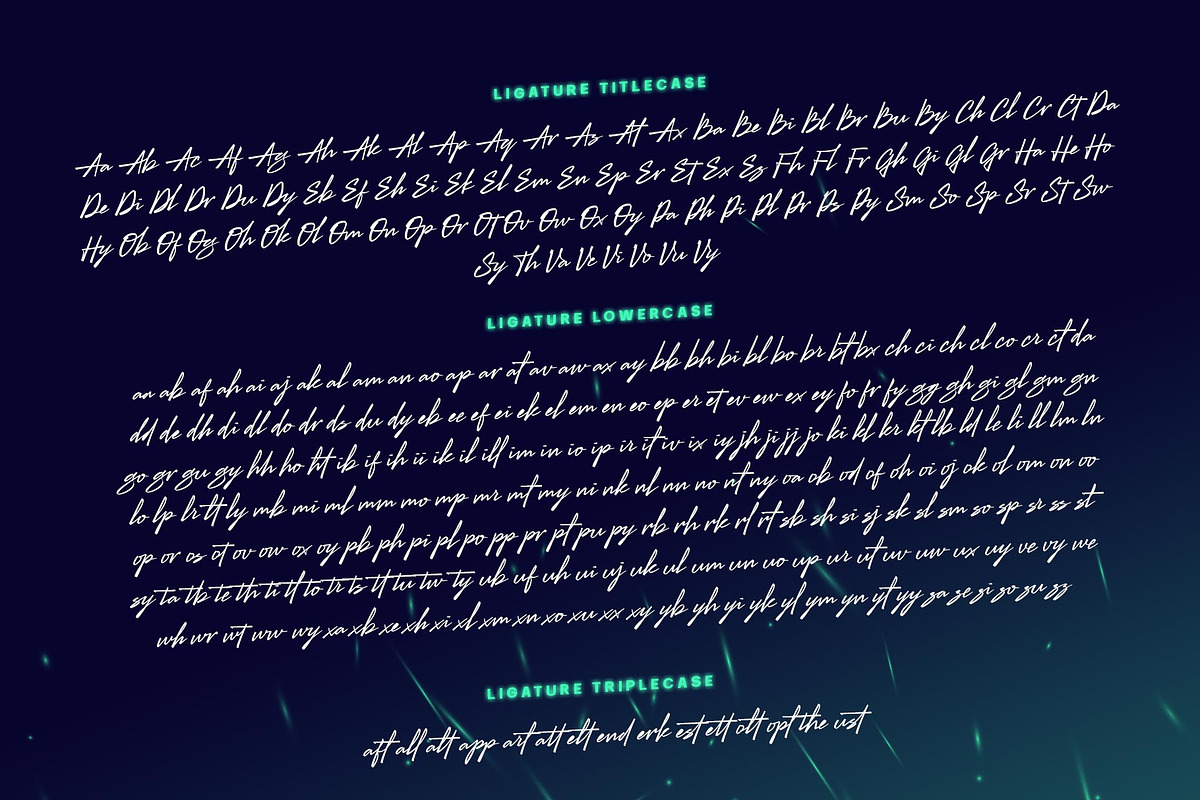 LIGATURE TITLECASE
Aa Ab Ac Af Ag Ah Ak Al Ap Aq Ar As At Ax Ba Be Bi Bl Br Bu By Ch Cl Cr Ct Da
De Di Dl Dr Du Dy Eb Ef Eh Ei Ek El Em En Ep Er Et Ex Ez Fh Fl Fr Gh Gi Gl Gr Ha He Ho
Hy Ob Of Og Oh Ok Ol Om On Op Or Ot Ov Ow Ox Oy Pa Ph Pi Pl Pr Ps Py Sm So Sp Sr St Sw
Sy Th Va Ve Vi Vo Vu Vy
LIGATURE LOWERCASE
an ab af ah ai aj ak al am an ao ap ar at av aw ax ay bb bh bi bl bo br bt bx ch ci ch cl co cr ct da
dd de dh di dl do dr ds du dy eb ee ef ei ek el em en eo ep er et ev ew ex ey fo fr fy gg gh gi gl gm gn
go gr gu gy hh ho ht ib if ih ii ik il ill im in io ip ir it iv ix iy jh ji jj jo ki kl kr kt lb ld le li ll lm ln
lo lp lr lt ly mb mi ml mm mo mp mr mt my ni nk nl nn no nt ny oa ob od of oh oi oj ok ol om on oo
op or os ot ov ow ox oy pb ph pi pl po pp pr pt pu py rb rh rk rl rt sb sh si sj sk sl sm so sp sr ss st
sy ta tb te th ti tl to ti ts tt tu tw ty ub uf uh ui uj uk ul um un uo up ur ut uv uw ux uy ve vy we
wh wr wt ww wy xa xb xe xh xi xl xm xn xo xu xx xy yb yh yi yk yl ym yn yt yy za ze zi zo zu zz
LIGATURE TRIPLECASE
aft all alt app art att elt end erk est ett olt opt the ust